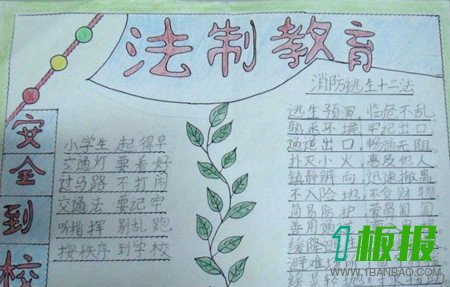 法制教育
安全到校
小学生 起得早
交通灯 要看好
过马路 不打闹
交通法 要记牢
听指挥 别乱跑
按秩序 到学校
消防逃生十二法
逃生预演，临危不乱
熟悉环境，牢记出口
通道出口，畅通无阻
扑灭小火，惠及他人
镇静辨向，迅速撤离
不入险地，不贪财物
简易防护，
善用通
缓降逃
避难场所
1板报
WWW.1BANBAO.COM